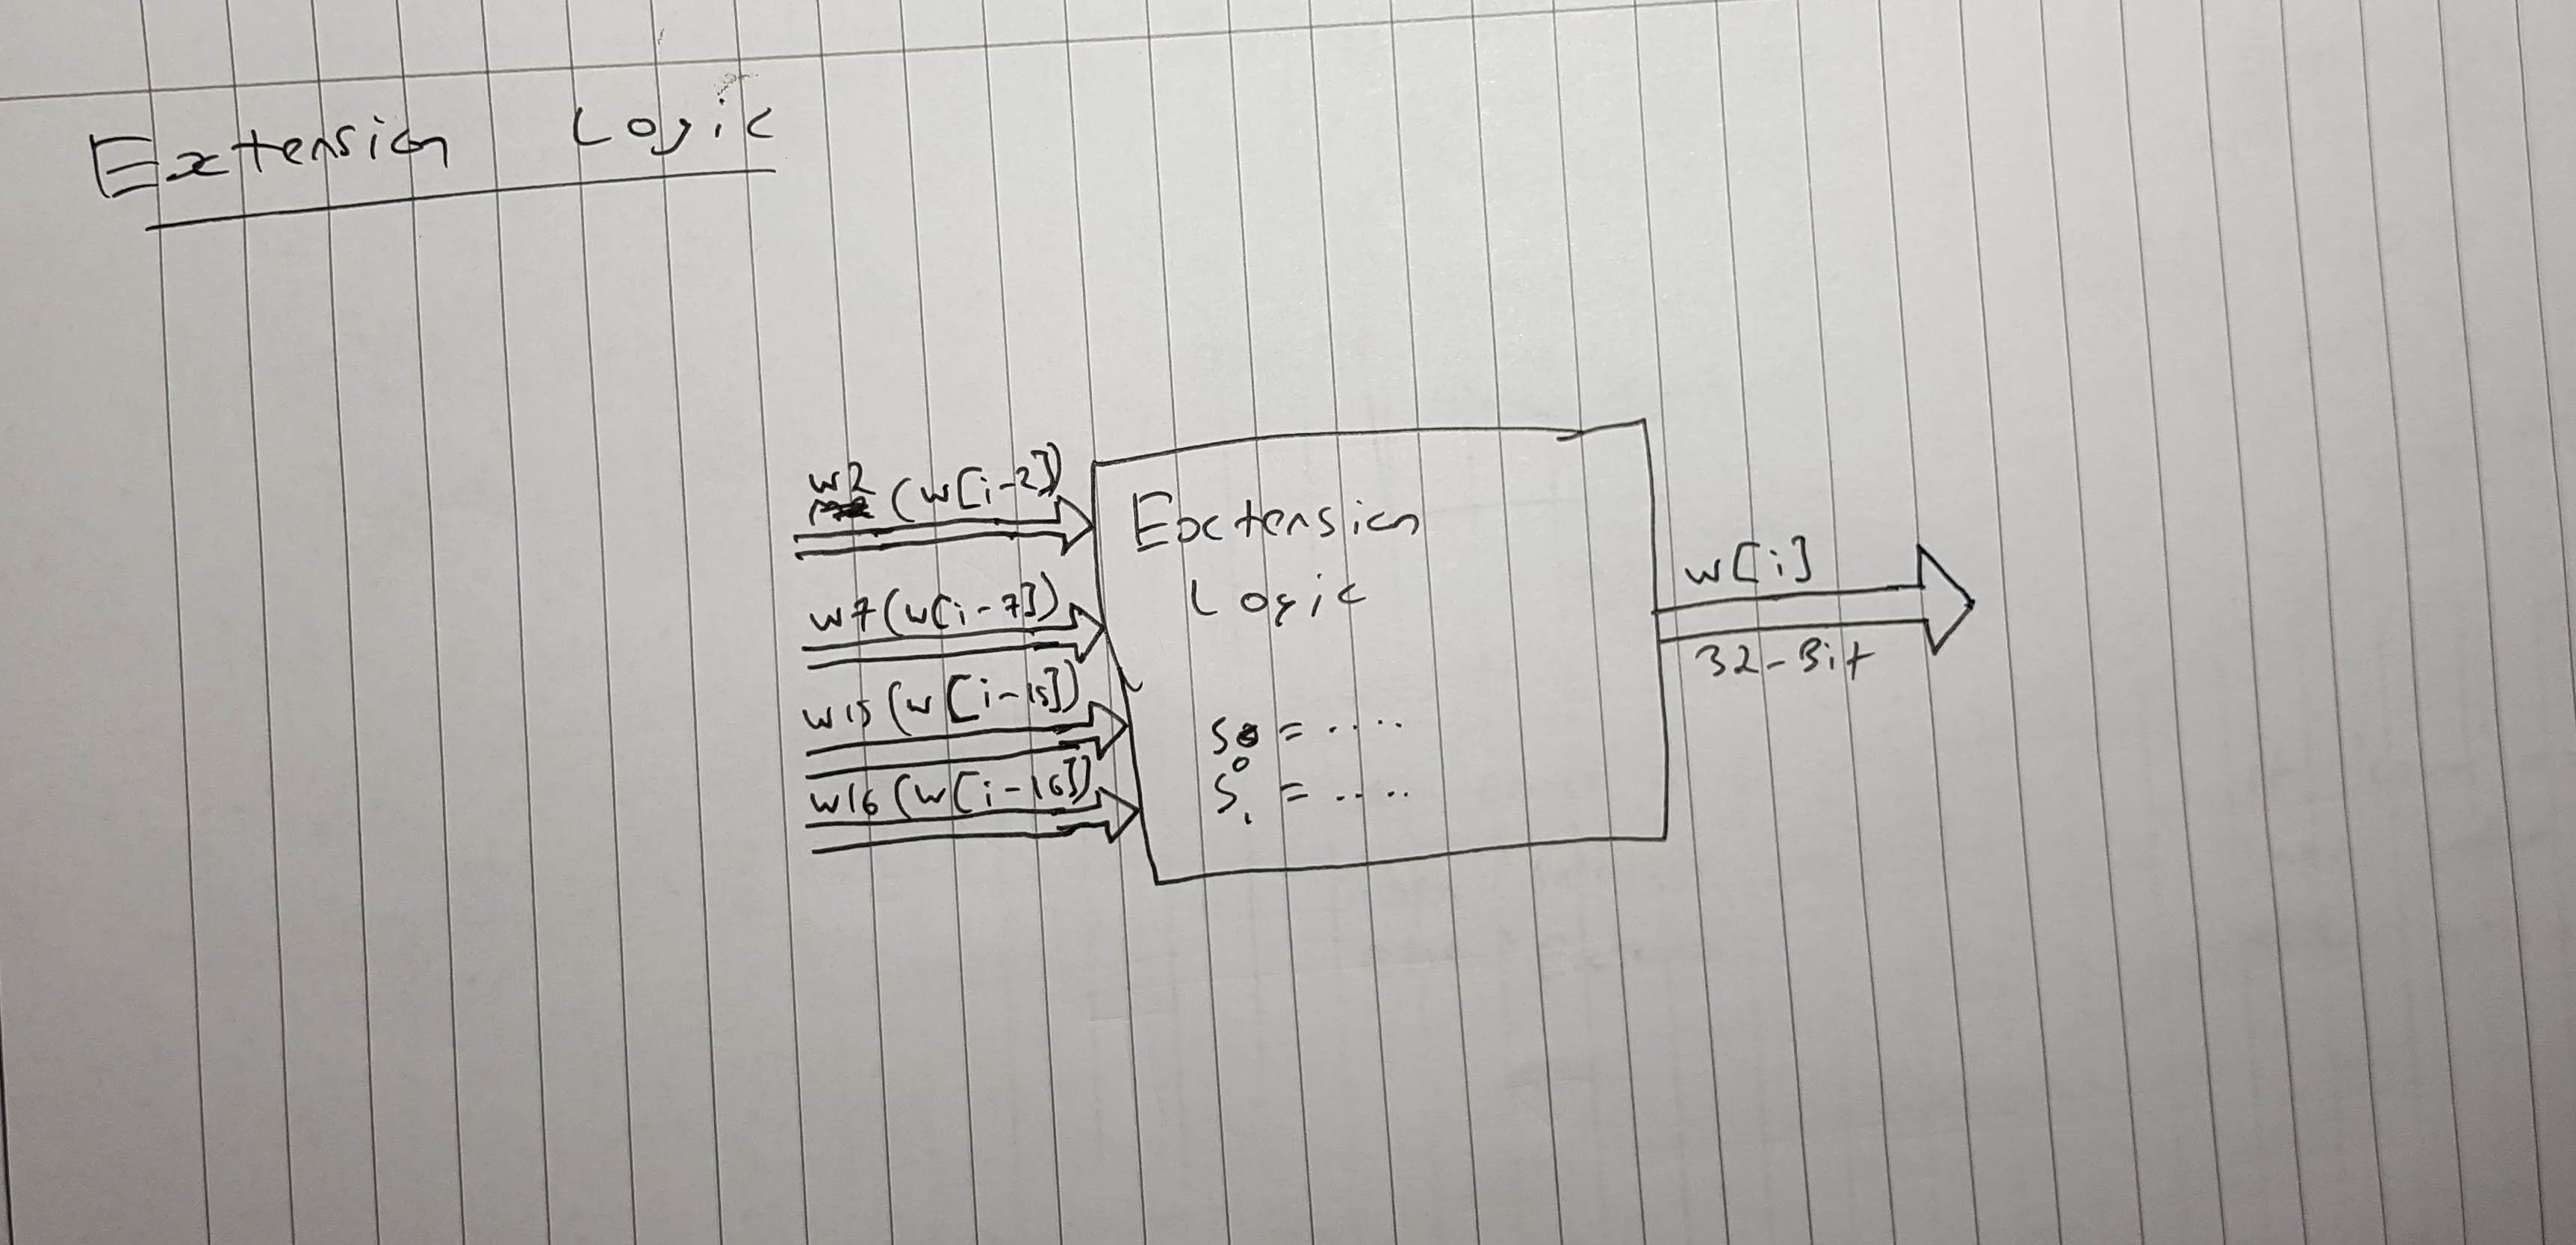 Extension Logic
w2 (w[i-2])
w7 (w[i-7])
w15 (w[i-15])
w16 (w[i-16])
Extension
Logic
s0 = ....
s1 = ....
w[i]
32-Bit